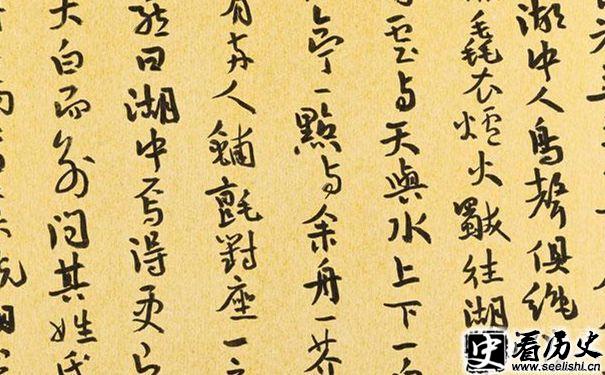 湖中人鳥聲俱絕
毳衣爐火獨往湖
雲与天與水上下一
亭一點与余舟一芥
有兩人鋪氈對座一
曰湖中焉得更
大白而別問其姓氏
史 看历史
www.seelishi.cn